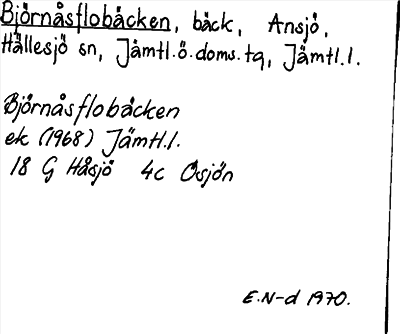 Björnåsflobäcken, bäck, Ansjö,
Hällesjö sn, Jämtl.ö.doms.tg, Jämtl.l.
Björnåsflobäcken
ek (1968) Jämtl.l.
18 G Håsjö 4c Osjön
E.N-d 1970.